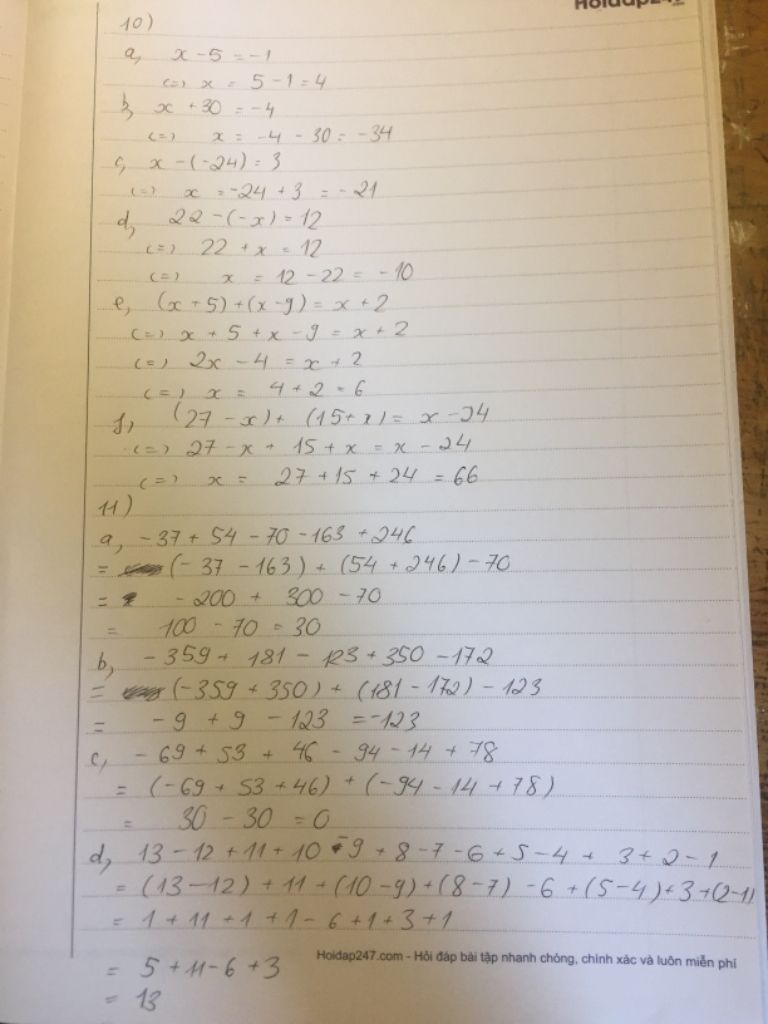 Hoidap247
10)
a, x - 5 = -1
(=) x = 5 - 1 = 4
b, x + 30 = -4
(=) x = -4 - 30 = -34
c, x - (-24) = 3
(=) x = -24 + 3 = -21
d, 22 - (-x) = 12
(=) 22 + x = 12
(=) x = 12 - 22 = -10
e, (x + 5) + (x - 9) = x + 2
(=) x + 5 + x - 9 = x + 2
(=) 2x - 4 = x + 2
(=) x = 4 + 2 = 6
f, (27 - x) + (15 + x) = x - 24
(=) 27 - x + 15 + x = x - 24
(=) x = 27 + 15 + 24 = 66
11)
a, -37 + 54 - 70 - 163 + 246
= (-37 - 163) + (54 + 246) - 70
= -200 + 300 - 70
= 100 - 70 = 30
b, -359 + 181 - 123 + 350 - 172
= (-359 + 350) + (181 - 172) - 123
= -9 + 9 - 123 = -123
c, -69 + 53 + 46 - 94 - 14 + 78
= (-69 + 53 + 46) + (-94 - 14 + 78)
= 30 - 30 = 0
d, 13 - 12 + 11 + 10 - 9 + 8 - 7 - 6 + 5 - 4 + 3 + 2 - 1
= (13 - 12) + 11 + (10 - 9) + (8 - 7) - 6 + (5 - 4) + 3 + (2 - 1)
= 1 + 11 + 1 + 1 - 6 + 1 + 3 + 1
= 5 + 11 - 6 + 3
= 13
Hoidap247.com - Hỏi đáp bài tập nhanh chóng, chính xác và luôn miễn phí